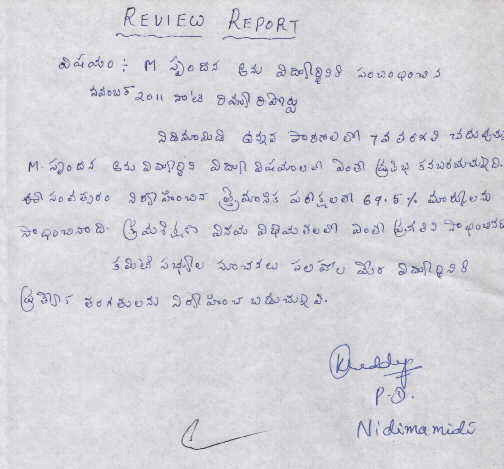 REVIEW REPORT
విషయం : M స్పందన అను విద్యార్థినికి సంబంధించిన
నవంబర్ 2011 నాటి రివ్యూ రిపోర్టు
నిడిమామిడి ఉన్నత పాఠశాలలో 7వ తరగతి చదువుచున్న
M. స్పందన అను విద్యార్థిని విద్యా విషయాలలో ఎంతో ప్రతిభ కనబరుచుచున్నది.
ఈ సంవత్సరం నిర్వహించిన త్రైమాసిక పరీక్షలలో 69.5% మార్కులను
సాధించినాది. క్రమశిక్షణ వినయ విధేయతలలో ఎంతో ప్రగతిని సాధించినది
కమిటీ సభ్యుల సూచనలు సలహాల మేర విద్యార్థినికి
ప్రత్యేక తరగతులను నిర్వహించ బడుచున్నవి.
KReddy
P.D.
Nidimamidi